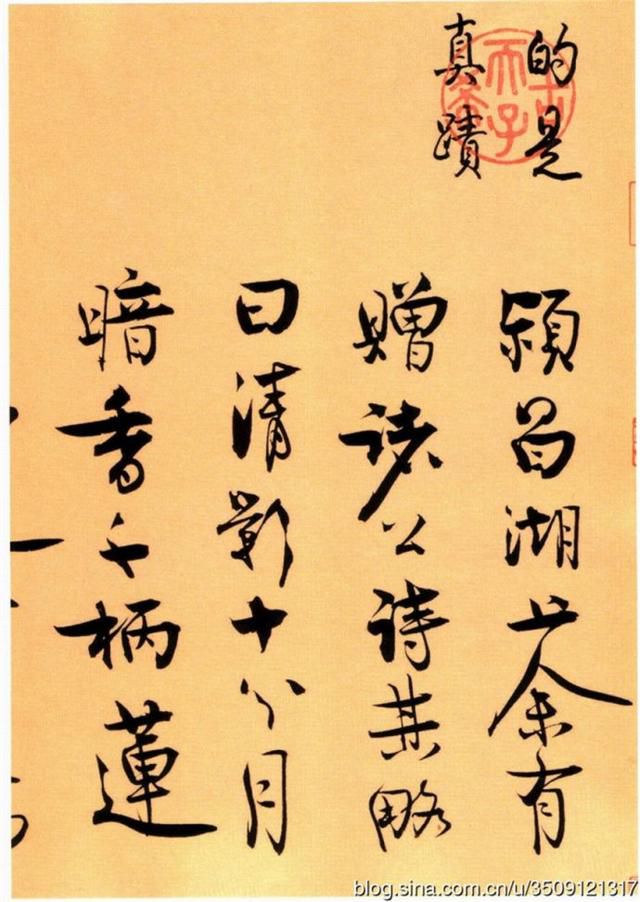 的是
真蹟
古希天子
潁昌湖上余有
贈諸公詩其略
曰清影十分月
暗香千柄蓮
blog.sina.com.cn/u/3509121317